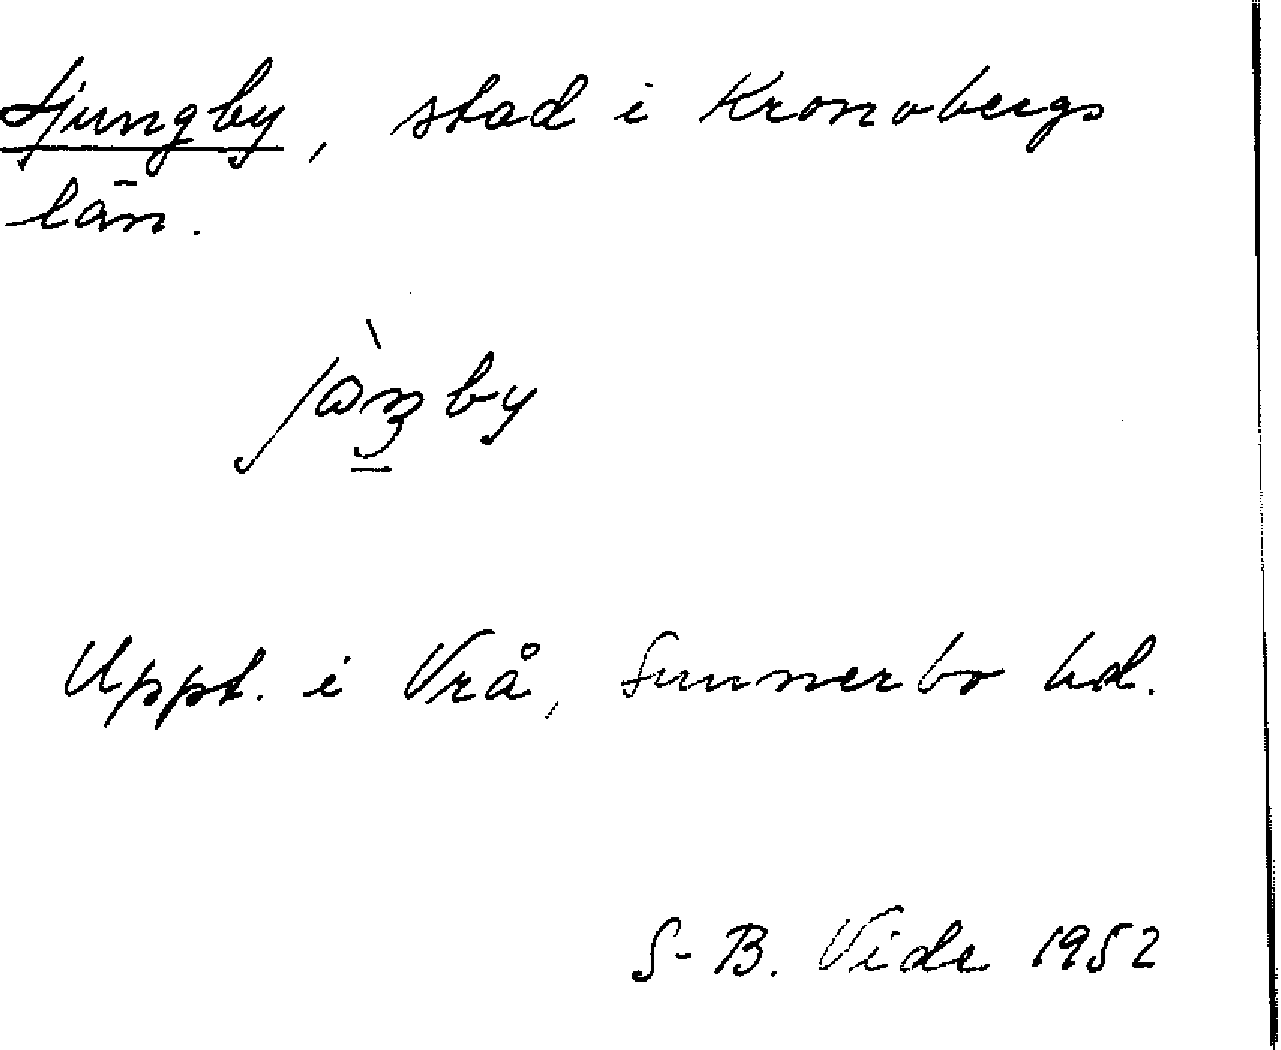 Ljungby, stad i Kronobergs
län.
jὼŋby
Uppt. i Vrå, Sunnerbo hd.
S-B. Vide 1952